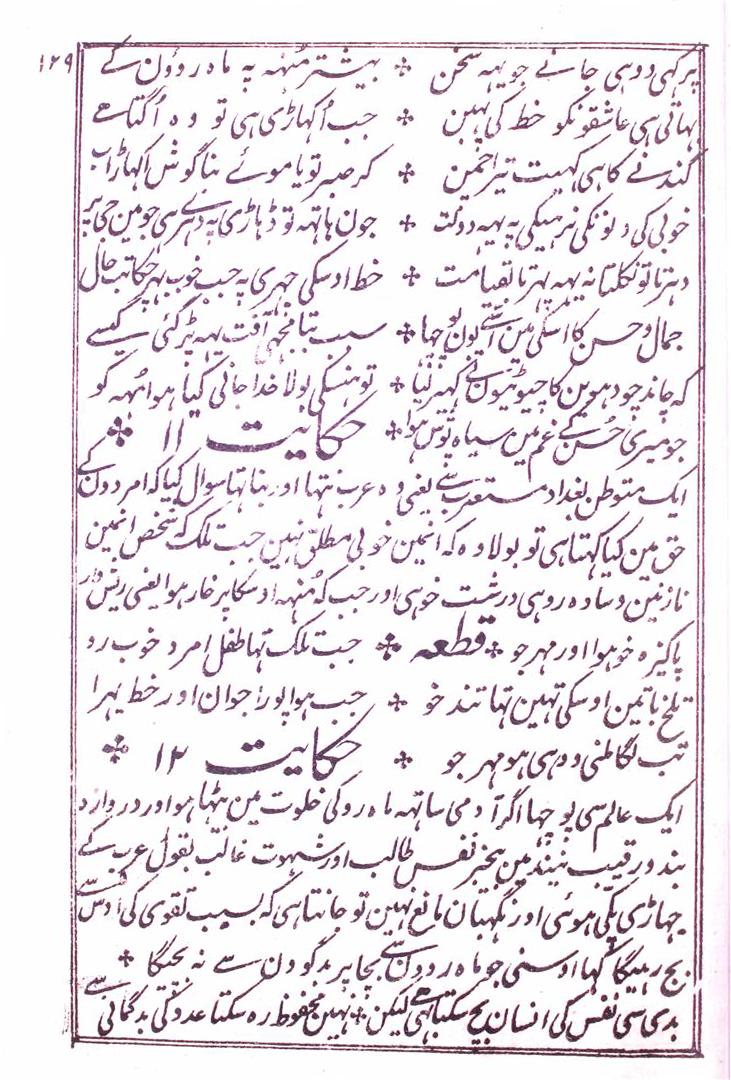 ۱۲۹
پر کہی وہی جانے جو یہہ سخن ✤ بیشتر مُنہہ پہ ماہ روؤن کے
بہاتی ہی عاشقونکو خط کی پہبن ✤ جب اُکہاڑی ہی تو وہ اُگتاہے
گندنے کا ہی کہیت تیرا چمن ✤ کر صبر تو یا موئے بناگوش اکہاڑاب
خوبی کی دنونکی نرہیگی پہ یہہ دولت ✤ جون ہاتہہ تو ڈہاڑی پہ دہرے سی جو مین جی پر
دہرتا تو نکلتا نہ یہہ پہر تا بقیامت ✤ خط اوسکی چہری پہ جب خوب بہر چکا تب حال
جمال و حسن کا اسکی مین اُسّے یون پوچہا ✤ سبب بتا مجہی آفت یہہ پڑ گئی کیسے
کہ چاند چودہوین کا چیونٹیون نے گہیر لیا ✤ تو ہنسکی بولا خدا جانی کیا ہوا مُنہہ کو
جو میری حُسن کے غم مین سیاہ پوش ہوا ✤ حکایت ۱۱ ✤
ایک متوطن بغداد مستعرب سے یعنی وہ عرب نتہا اور بنا تہا سوال کیا کہ امردون کے
حق مین کیا کہتا ہی تو بولا وہ کہ انمین خوبی مطلق نہین جب تلک کہ شخص انمین
نازنین و سادہ روہی درشت خوہی اور جب کہ مُنہہ اوسکا پر خار ہوا یعنی ریش دار
پاکیزہ خو ہوا اور مہر جو ✤ قطعہ ✤ جب تلک تہا طفل امرد خوب رو
تلخ باتین اوسکی تہین تہا تند خو ✤ جب ہوا پورا جوان اور خط بہرا
تب لگا ملنی وہی ہو مہر جو ✤ حکایت ۱۲ ✤
ایک عالم سی پوچہا اگر آدمی ساتہہ ماہ رو کی خلوت مین بیٹہا ہو اور دروازہ
بند و رقیب نیند مین بیخبر نفس طالب اور شہوت غالب بقول عرب کے
جہاڑی پکی ہوئی اور نگہبان مانع نہین تو جانتا ہی کہ بسبب تقوی کی اوس سے
بچ رہیگا کہا اوسنی جو ماہ روون سے بچا پر بدگوون سے نہ بچیگا ✤
بدی سی نفس کی انسان بچ سکتا ہی لیکن ✤ نہین محفوظ رہ سکتا عدو کی بدگمانی سے